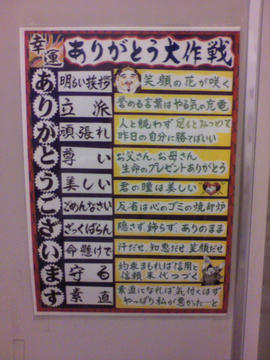 幸運
ありがとう大作戦
ありがとうございます
明るい挨拶
笑顔の花が咲く
立派
誉める言葉はやる気の充電
頑張れ
人と競わず 足もとみつめて
昨日の自分に勝てばいい
尊い
お父さん、お母さん
生命のプレゼントありがとう
美しい
君の瞳は美しい
ごめんなさい
反省は心のゴミの焼却炉
ざっくばらん
隠さず、飾らず、ありのまま
命懸けで
汗だせ、知恵だせ、笑顔だせ
守る
約束まもれば信用と
信頼 末代つづく
素直
素直になれば気付くはず
やっぱり私が悪かった…と